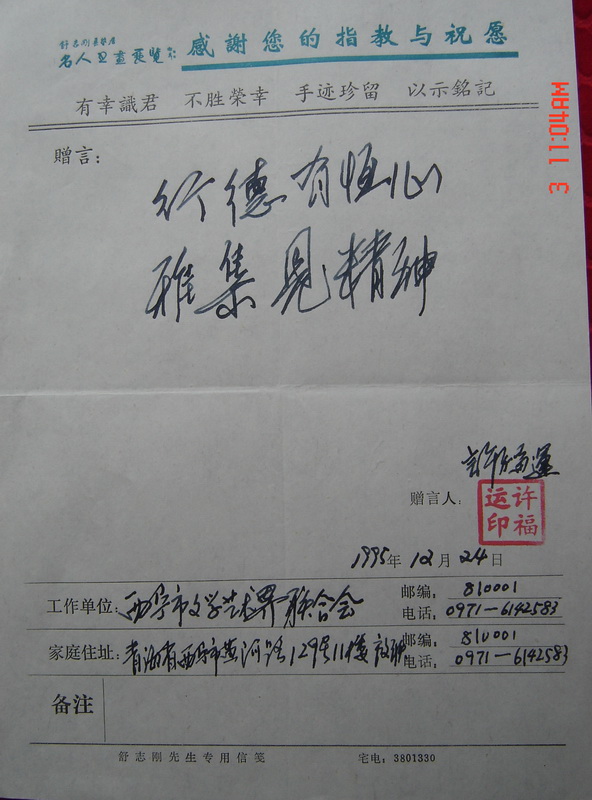 舒志刚
名人 感謝您的指教与祝愿
有幸識君 不胜榮幸 手迹珍留 以示銘記
3 11:04AM
赠言：
行德有恒心
雅集見精神
许福運
赠言人：
许福
运印
1995年12月24日
工作单位：西宁市文学艺术界联合会 邮编：810001
电话：0971-6142583
家庭住址：青海省西宁市黄河路129号11楼 邮编：810001
电话：0971-6142583
备注
舒志刚先生专用信笺 宅电：3801330